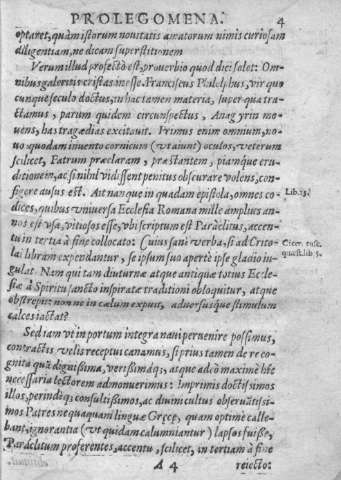 PROLEGOMENA. 4
optaret, quàm istorum nouitatis amatorum nimis curiosam
diligentiam, ne dicam superstitionem
Verum illud profectò est, prouerbio quod dici solet: Om-
nibus galeritis cristas inesse. Franciscus Philelphus, vir quo
cunque seculo doctus, in hac tamen materia, super qua tra-
ctamus, parum quidem circunspectus, Anagyrin mo-
uens, has tragœdias excitauit. Primus enim omnium, no-
uo quodam inuento cornicum (vt aiunt) oculos, veterum
scilicet, Patrum præclaram, præstantem, piamque eru-
ditionem, ac si nihil vidissent penitus obscurare volens, con-
figere ausus est. Ait nanque in quadam epistola, omnes co-
dices, quibus vniuersa Ecclesia Romana mille amplius an-
nos est vsa, vitiosos esse, vbi scriptum est Paráclitus, accen-
tu in tertia à fine collocato: Cuius sanì verba, si ad Crito-
lai libram expendantur, se ipsum suo apertè ipse gladio iu-
gulat. Nam qui tam diuturnæ atque antiquæ totius Eccle-
siæ à Spiritu sancto inspiratæ traditioni obloquitur, atque
obstrepit: nonne in cælum expuit, aduorsusque stimulum
calces iactat?
Lib. 15.
Cicer. tusc.
quæst. lib. 5.
Sed iam vt in portum integra naui peruenire possimus,
contractis velis receptui canamus, si prius tamen de re co-
gnita quæ dignissima, verissimáq;, atque adeò maximè hîc
necessaria lectorem admonuerimus: Imprimis doctissimos
illos, perindéq; consultissimos, ac diuini cultus obseruãtissi-
mos Patres nequaquam linguæ Gręcę, quam optimè calle-
bant, ignorantia (vt quidam calumniantur) lapsos fuisse,
Paráclitum proferentes, accentu, scilicet, in tertiam à fine
A 4 reiecto: